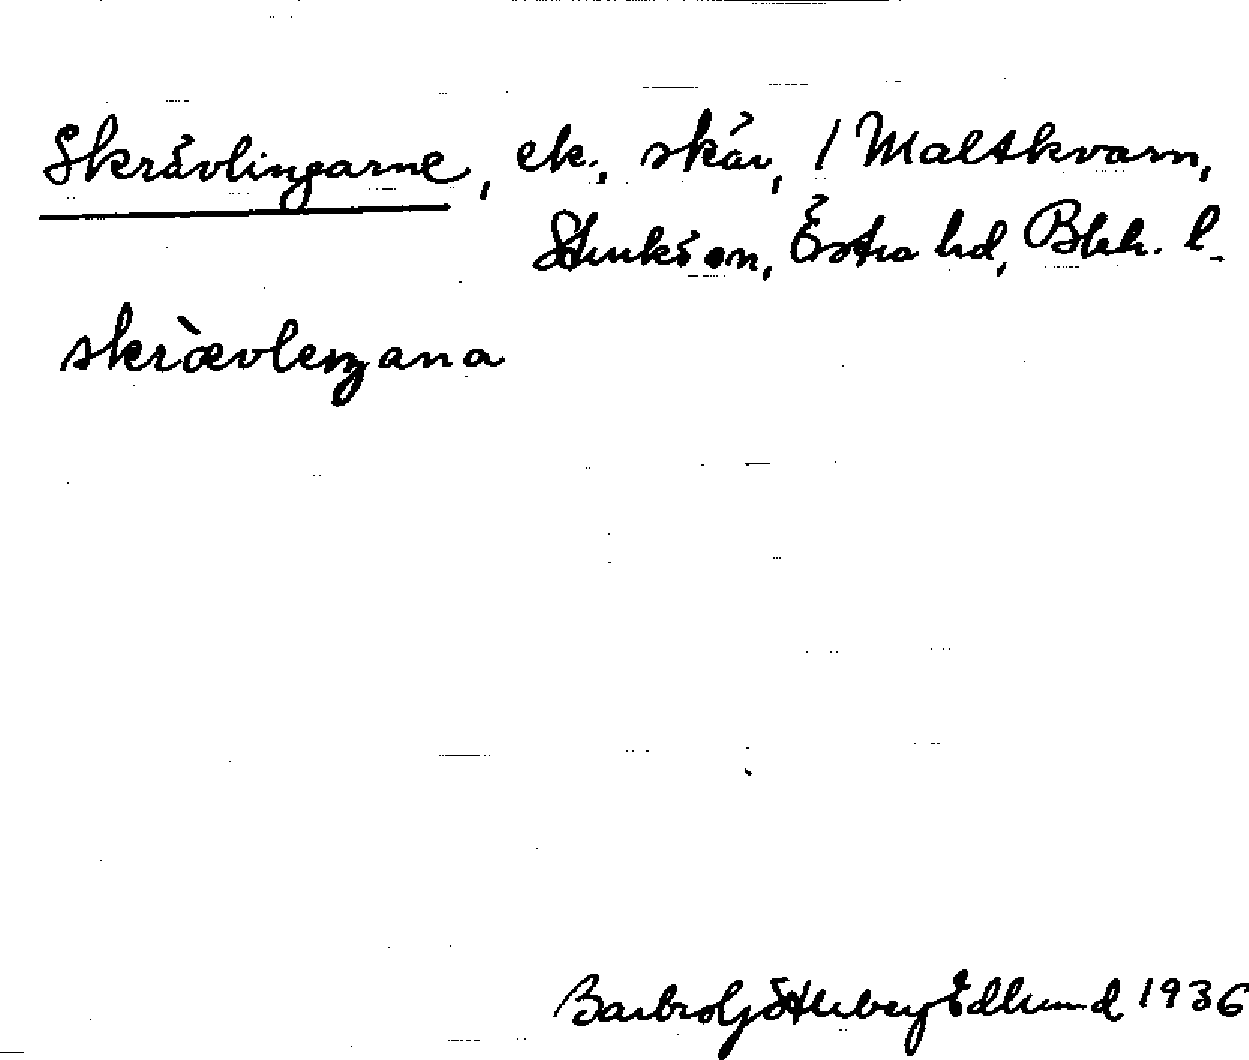 Skrävlingarne, ek. skär, 1 Maltkvarn,
Sturkö sn, Östra hd, Blek. l.
skrævleŋana
Barbro Götlberg Edlund 1936